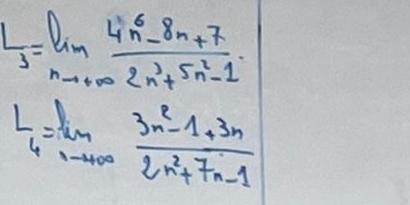 L₃ = lim n→+∞ (4n⁶ - 8n + 7) / (2n³ + 5n² - 1)
L₄ = lim n→+∞ (3n² - 1 + 3n) / (2n² + 7n - 1)